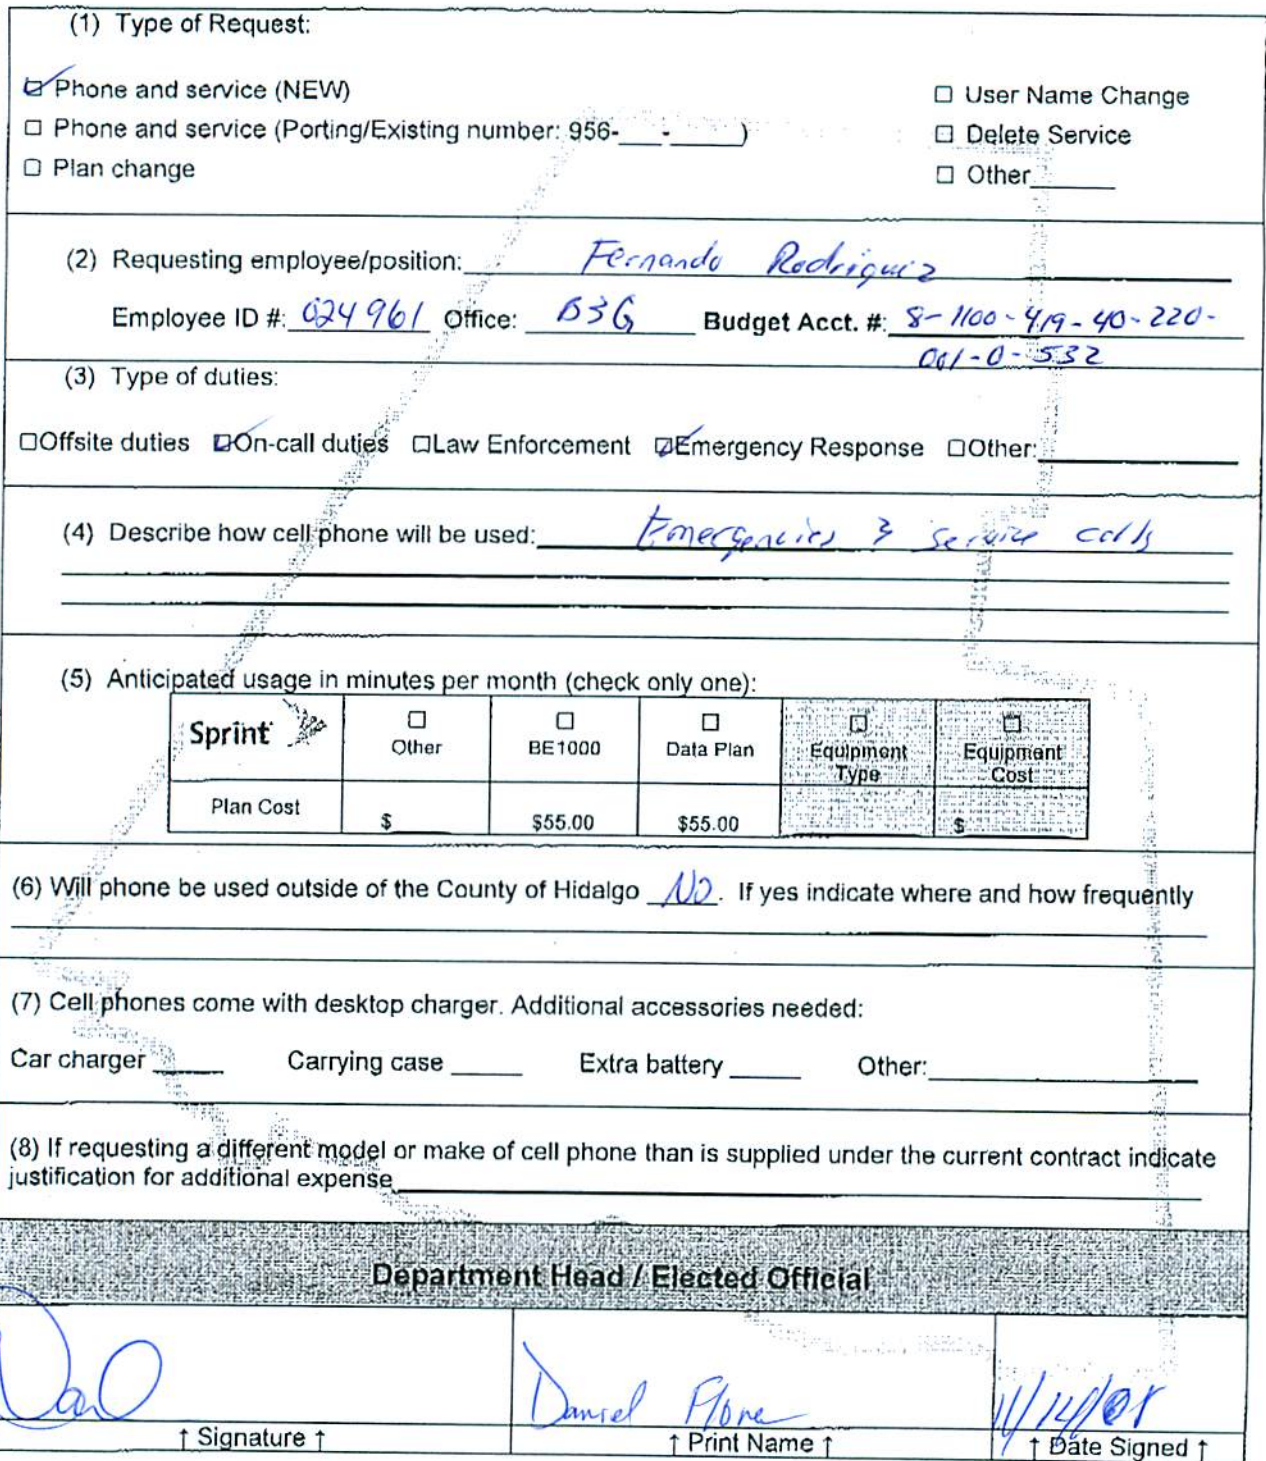 (1) Type of Request:
☑ Phone and service (NEW)
☐ User Name Change
☐ Phone and service (Porting/Existing number: 956-___-_____)
☐ Delete Service
☐ Plan change
☐ Other______
(2) Requesting employee/position: Fernando Rodriguez
Employee ID #: 024961 Office: B3G Budget Acct. #: 8-1100-419-40-220-
001-0-532
(3) Type of duties:
☐Offsite duties ☑On-call duties ☐Law Enforcement ☑Emergency Response ☐Other:
(4) Describe how cell phone will be used: Emergencies & service calls
(5) Anticipated usage in minutes per month (check only one):
Sprint ☐ Other ☐ BE1000 ☐ Data Plan ☐ Equipment Type ☐ Equipment Cost
Plan Cost $______ $55.00 $55.00 $
(6) Will phone be used outside of the County of Hidalgo NO. If yes indicate where and how frequently
(7) Cell phones come with desktop charger. Additional accessories needed:
Car charger _____ Carrying case _____ Extra battery _____ Other:
(8) If requesting a different model or make of cell phone than is supplied under the current contract indicate
justification for additional expense
Department Head / Elected Official
Daniel 11/14/08
↑ Signature ↑ ↑ Print Name ↑ ↑ Date Signed ↑